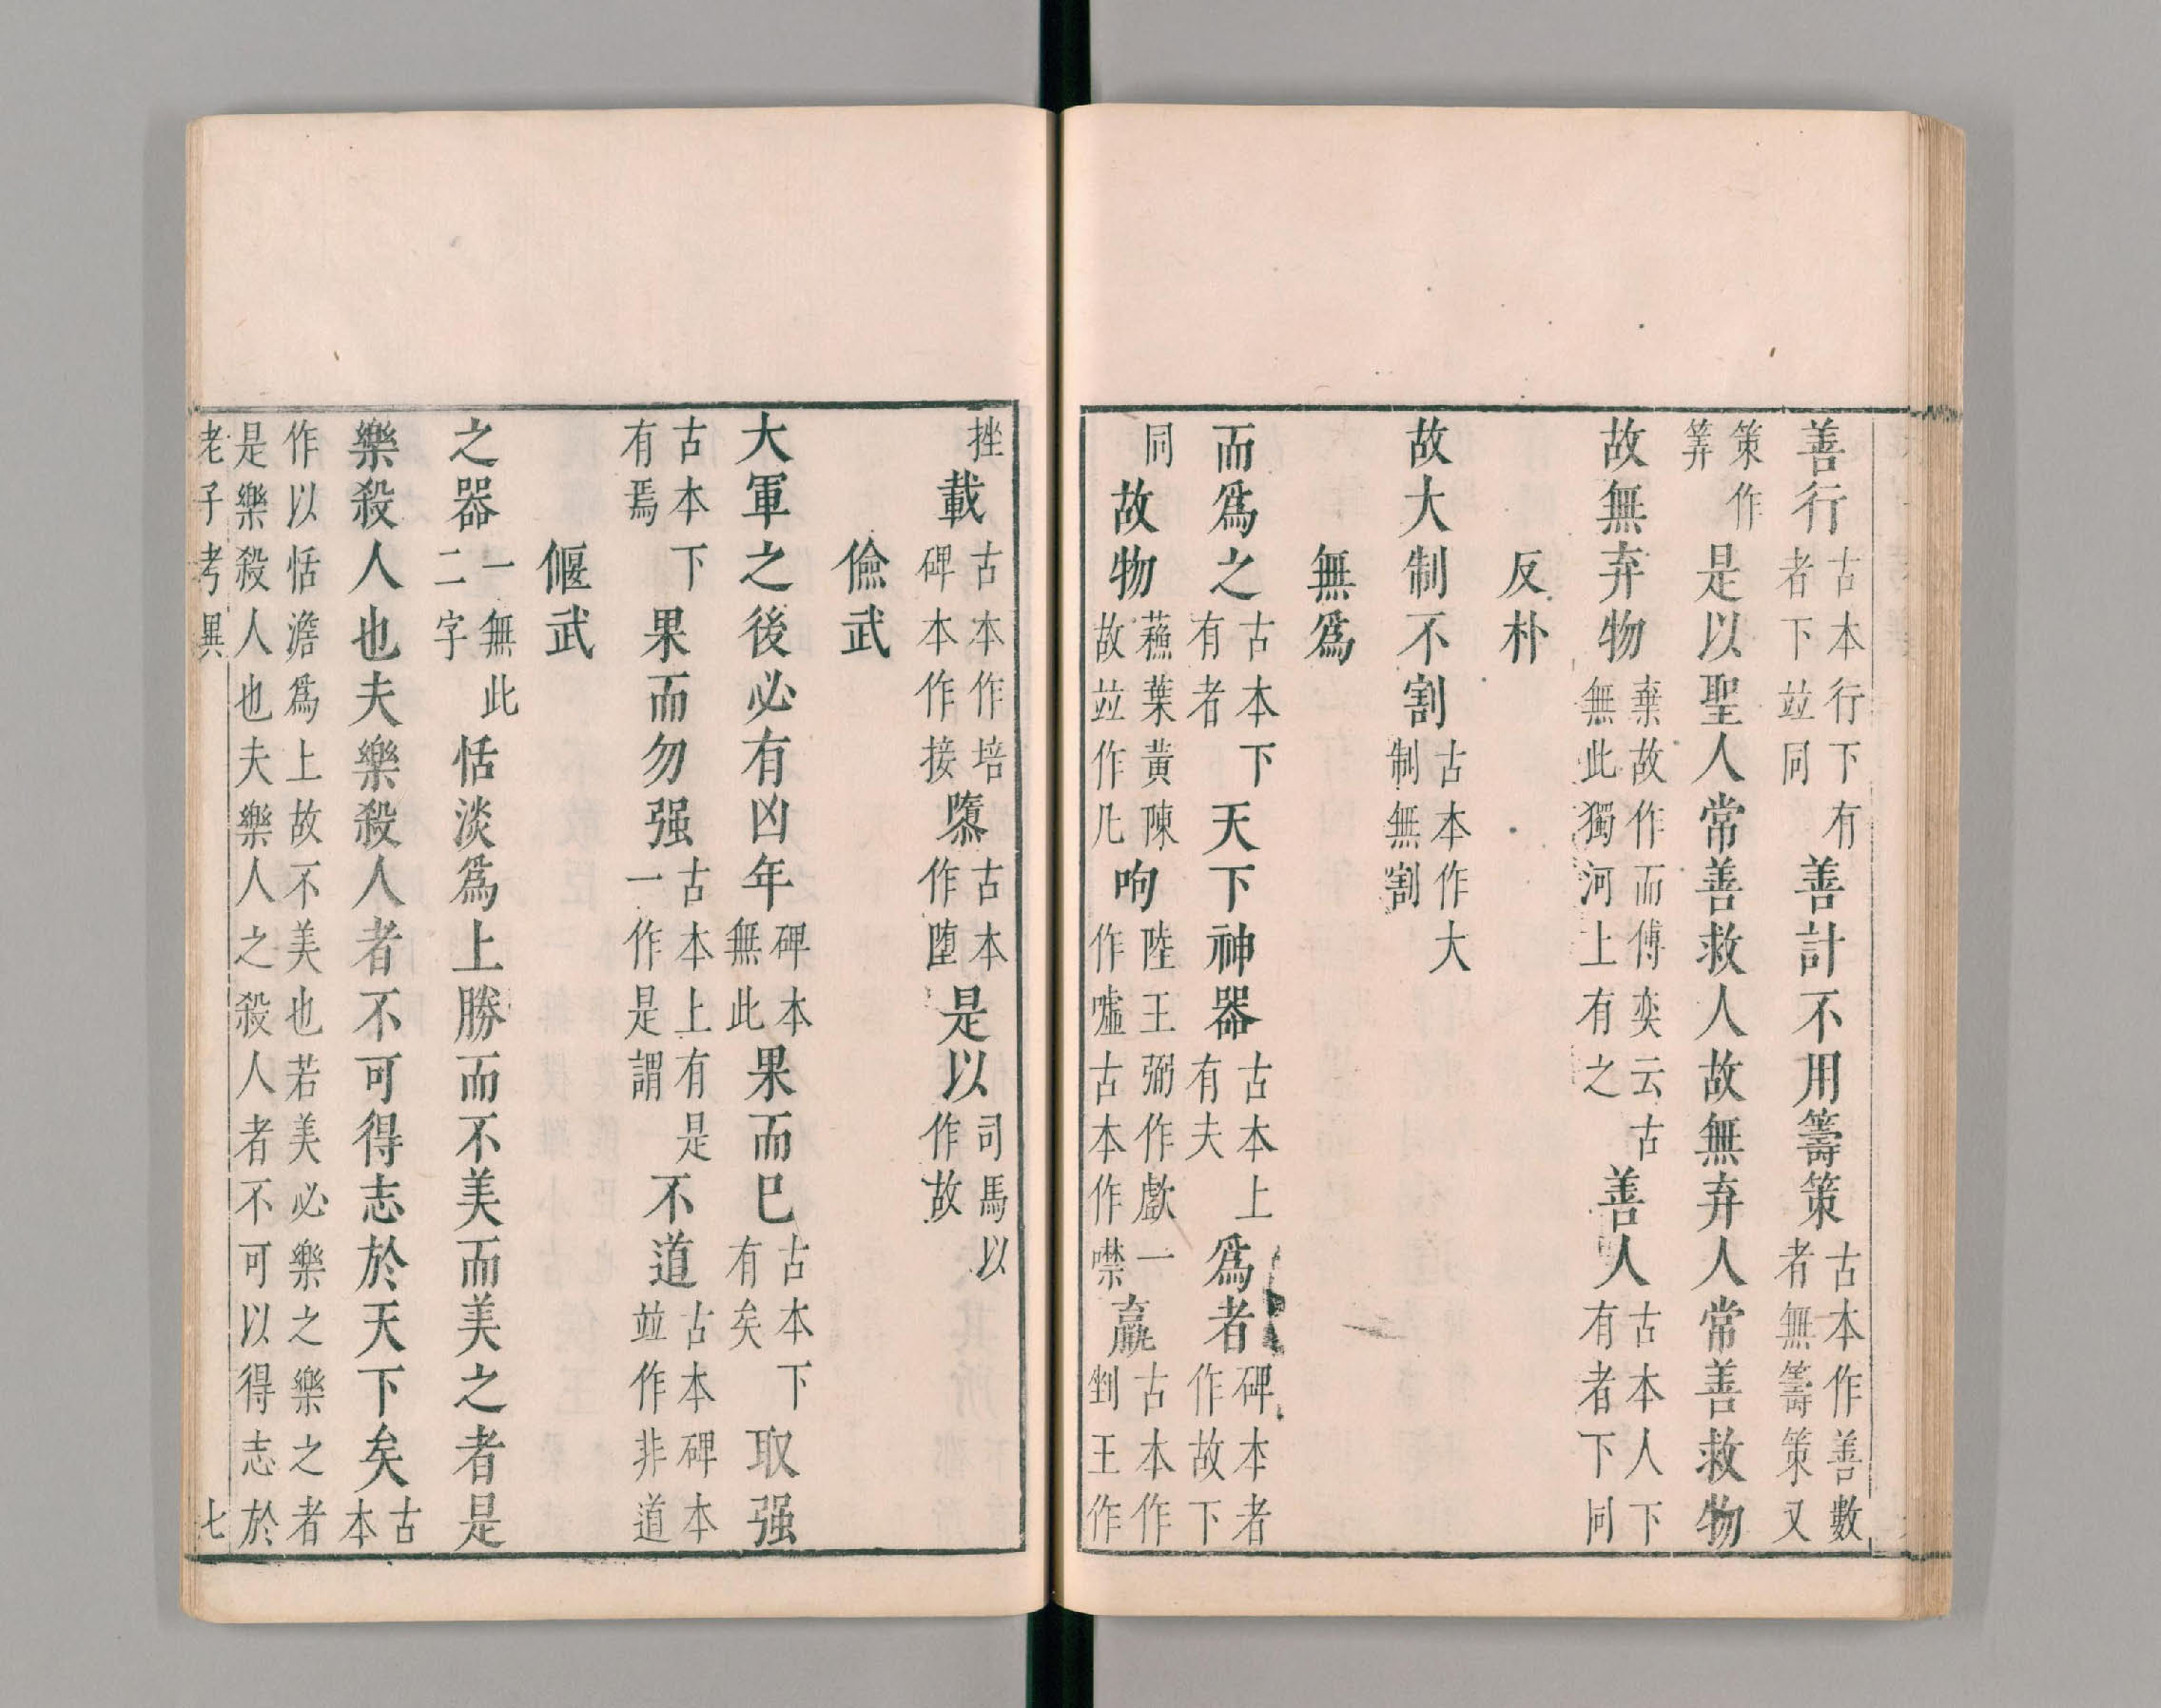 善行古本行下有者下竝同善計不用籌策古本作善數者無籌策又
策作筭是以聖人常善救人故無弃人常善救物
故無弃物棄故作而傅奕云古無此獨河上有之善人古本人下有者下同
反朴
故大制不割古本作大制無割
無爲
而爲之古本下有者天下神器古本上有夫爲者碑本者作故下
同故物蘓葉黄陳故竝作凡呴陸王弼作歔一作噓古本作噤羸古本作剉王作
挫載古本作培碑本作接隳古本作墮是以司馬以作故
儉武
大軍之後必有凶年碑本無此果而已古本下有矣取强
古本下有焉果而勿强古本上有是一作是謂不道古本碑本竝作非道
偃武
之器一無此二字恬淡爲上勝而不美而美之者是
樂殺人也夫樂殺人者不可得志於天下矣古本
作以恬澹爲上故不美也若美必樂之樂之者是樂殺人也夫樂人之殺人者不可以得志於
老子考異 七